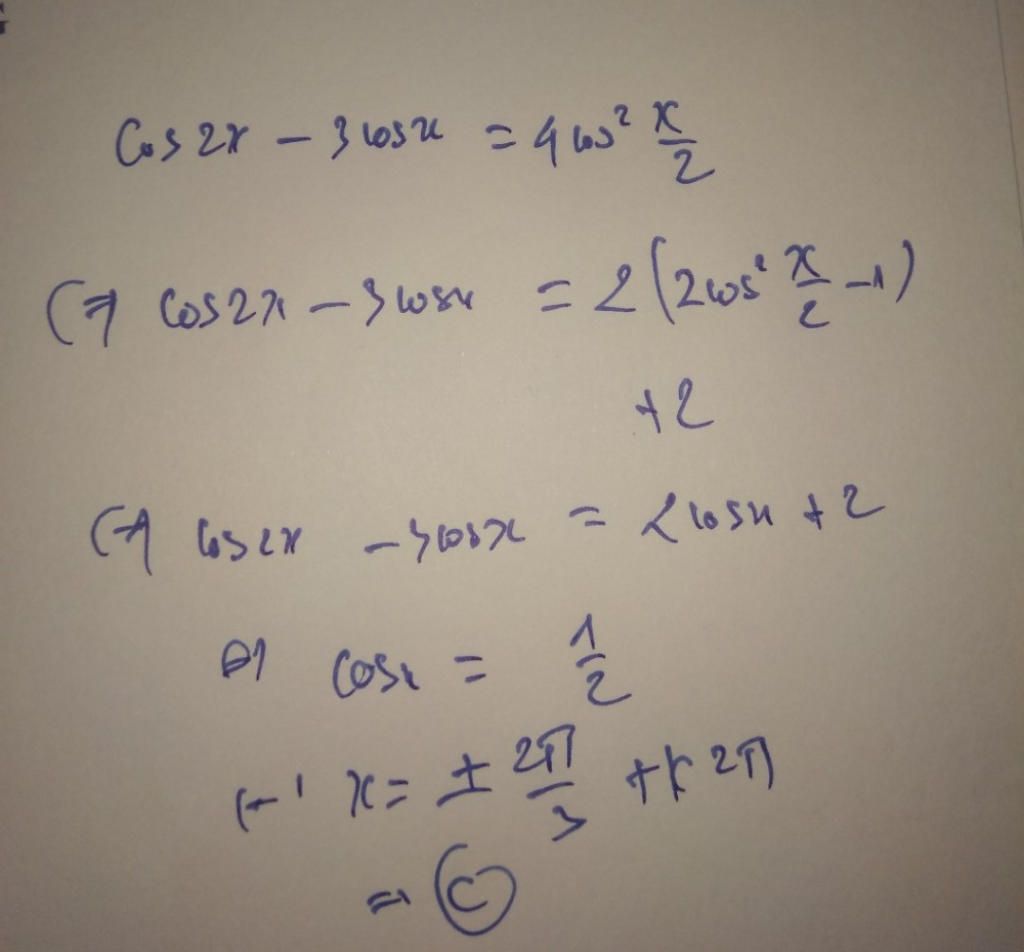 Cos 2x - 3 cosx = 4 cos² x/2
(=) cos2x - 3 cosx = 2(2cos² x/2 - 1)
+2
(=) cos2x - 3cosx = 2 cosx + 2
(=) cosx = 1/2
(=) x = ± 2π/3 + k 2π
=> C